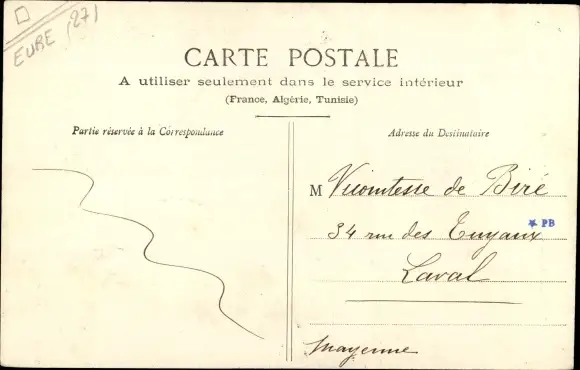 EURE (27)
CARTE POSTALE
A utiliser seulement dans le service intérieur
(France, Algérie, Tunisie)
Partie réservée à la Correspondance
Adresse du Destinataire
M Vicomtesse de Biré
34 rue des Tuyaux
PB
Laval
Mayenne